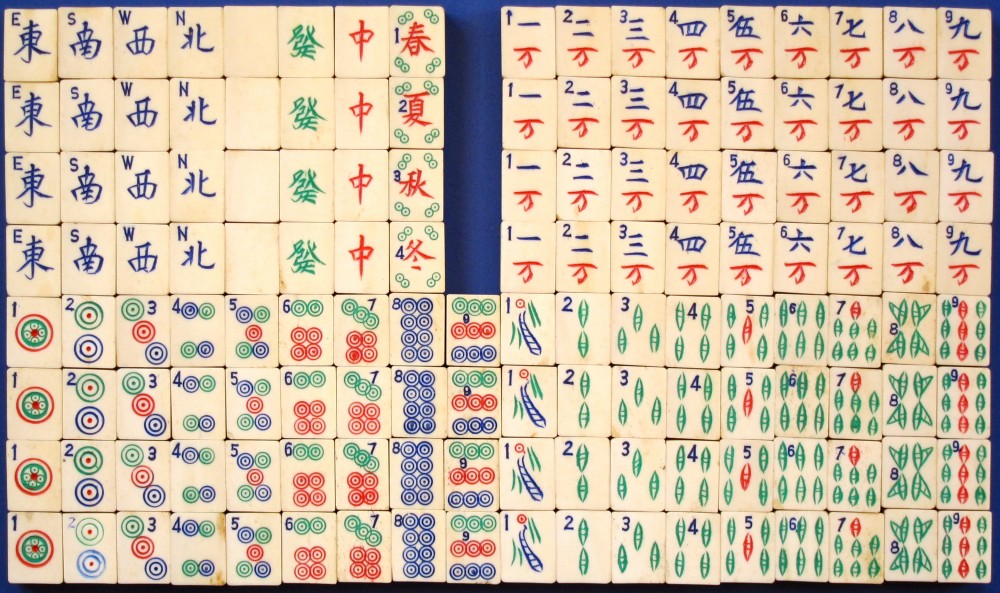 E 東 S 南 W 西 N 北 發 中 1 春 1 一万 2 二万 3 三万 4 四万 5 伍万 6 六万 7 七万 8 八万 9 九万
E 東 S 南 W 西 N 北 發 中 2 夏 1 一万 2 二万 3 三万 4 四万 5 伍万 6 六万 7 七万 8 八万 9 九万
E 東 S 南 W 西 N 北 發 中 3 秋 1 一万 2 二万 3 三万 4 四万 5 伍万 6 六万 7 七万 8 八万 9 九万
E 東 S 南 W 西 N 北 發 中 4 冬 1 一万 2 二万 3 三万 4 四万 5 伍万 6 六万 7 七万 8 八万 9 九万
1 2 3 4 5 6 7 8 9 1 2 3 4 5 6 7 8 9
1 2 3 4 5 6 7 8 9 1 2 3 4 5 6 7 8 9
1 2 3 4 5 6 7 8 9 1 2 3 4 5 6 7 8 9
1 2 3 4 5 6 7 8 9 1 2 3 4 5 6 7 8 9